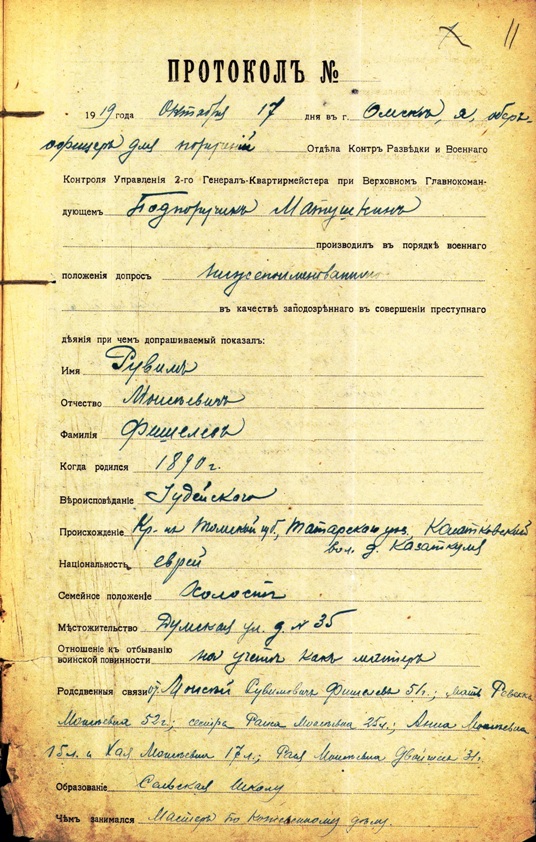 11
ПРОТОКОЛЪ №
1919 года Октября 17 дня въ г. Омскѣ, я, оберъ-
офицеръ для порученій Отдѣла Контръ Развѣдки и Военнаго
Контроля Управленія 2-го Генералъ-Квартирмейстера при Верховномъ Главнокоман-
дующемъ Подпоручикъ Матушкинъ
производилъ въ порядкѣ военнаго
положенія допросъ нижепоименованнаго
въ качествѣ заподозрѣннаго въ совершеніи преступнаго
дѣянія при чемъ допрашиваемый показалъ:
Имя Рувимъ
Отчество Моисѣевичъ
Фамилія Фишелевъ
Когда родился 1890 г.
Вѣроисповѣданіе Іудейскаго
Происхожденіе Кр. изъ Томской губ., Татарскаго уѣз., Казатковский
вол. д. Казаткуля
Національность еврей
Семейное положеніе Холостъ
Мѣстожительство Думская ул. д. № 35
Отношеніе къ отбыванію
воинской повинности на учетѣ какъ мастеръ
Родсдвенныя связи от. Моисѣй Рувимовичъ Фишелевъ 51 г.; мать Ревекка
Моисѣевна 52 г.; сестра Раша Моисѣевна 25 л.; Анна Моисѣевна
15 л. и Хая Моисѣевна 17 л.; Рая Моисѣевна 31 г.
Образованіе Сельская Школа
Чѣмъ занимался Мастеръ по Кожевенному дѣлу.